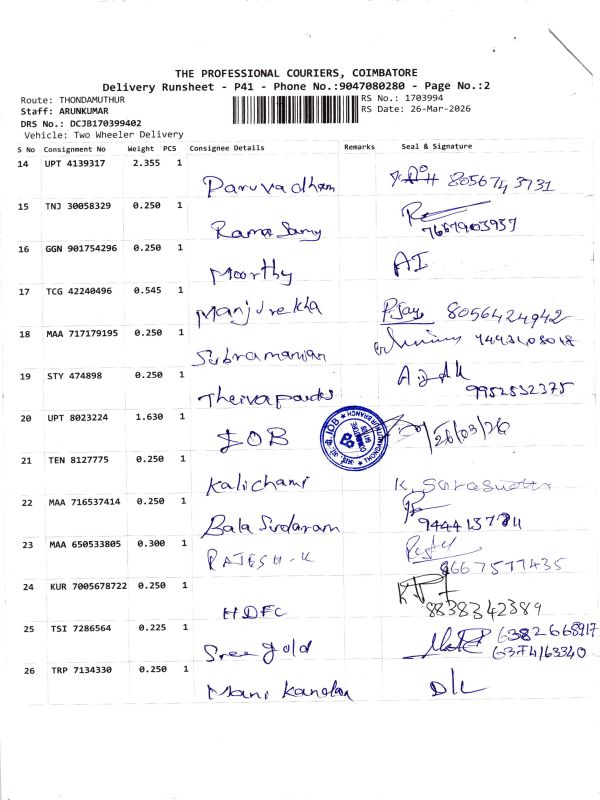 THE PROFESSIONAL COURIERS, COIMBATORE
Delivery Runsheet - P41 - Phone No.:9047080280 - Page No.:2
Route: THONDAMUTHUR RS No.: 1703994
Staff: ARUNKUMAR RS Date: 26-Mar-2026
DRS No.: DCJB170399402
Vehicle: Two Wheeler Delivery
S No Consignment No Weight PCS Consignee Details Remarks Seal & Signature
14 UPT 4139317 2.355 1
Paruvadham 8056743731
15 TNJ 30058329 0.250 1
Rama Samy
16 GGN 901754296 0.250 1
Moorthy AI
17 TCG 42240496 0.545 1
Manjurekha P.Jaya 8056424942
18 MAA 717179195 0.250 1
Subramanian
19 STY 474898 0.250 1
9952532375
20 UPT 8023224 1.630 1
IOB 26/03/26
21 TEN 8127775 0.250 1
Kalichami K.
22 MAA 716537414 0.250 1
Bala Sundaram
23 MAA 650533805 0.300 1
RAJESH-K 9667577435
24 KUR 7005678722 0.250 1
HDFC 8838342389
25 TSI 7286564 0.225 1
Sree gold 6382668917
6374163340
26 TRP 7134330 0.250 1
Mani Kandan